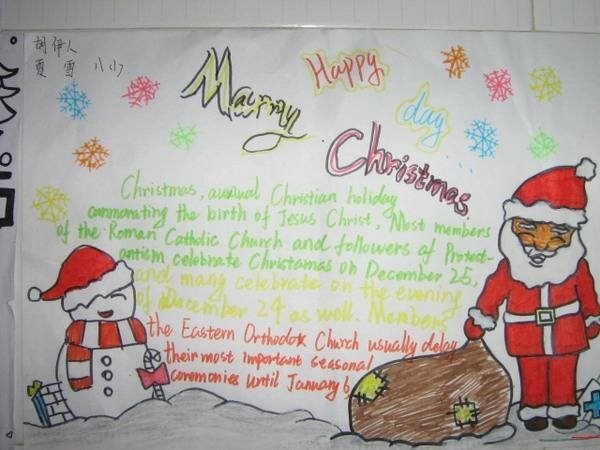 胡伊人
夏雪 八小
Marrny
Happy
day
Christmas
Christmas, auuual Christian holiday
commorating the birth of Jesus Christ, Most members
of the Roman Catholic Church and followers of Protect-
antism celebrate Christamas on December 25,
and mang celebrate on the evening
of December 24 as well. Members
the Eastern Orthodox Church usually delay
their most important seasonal
ceremonies until January 6,